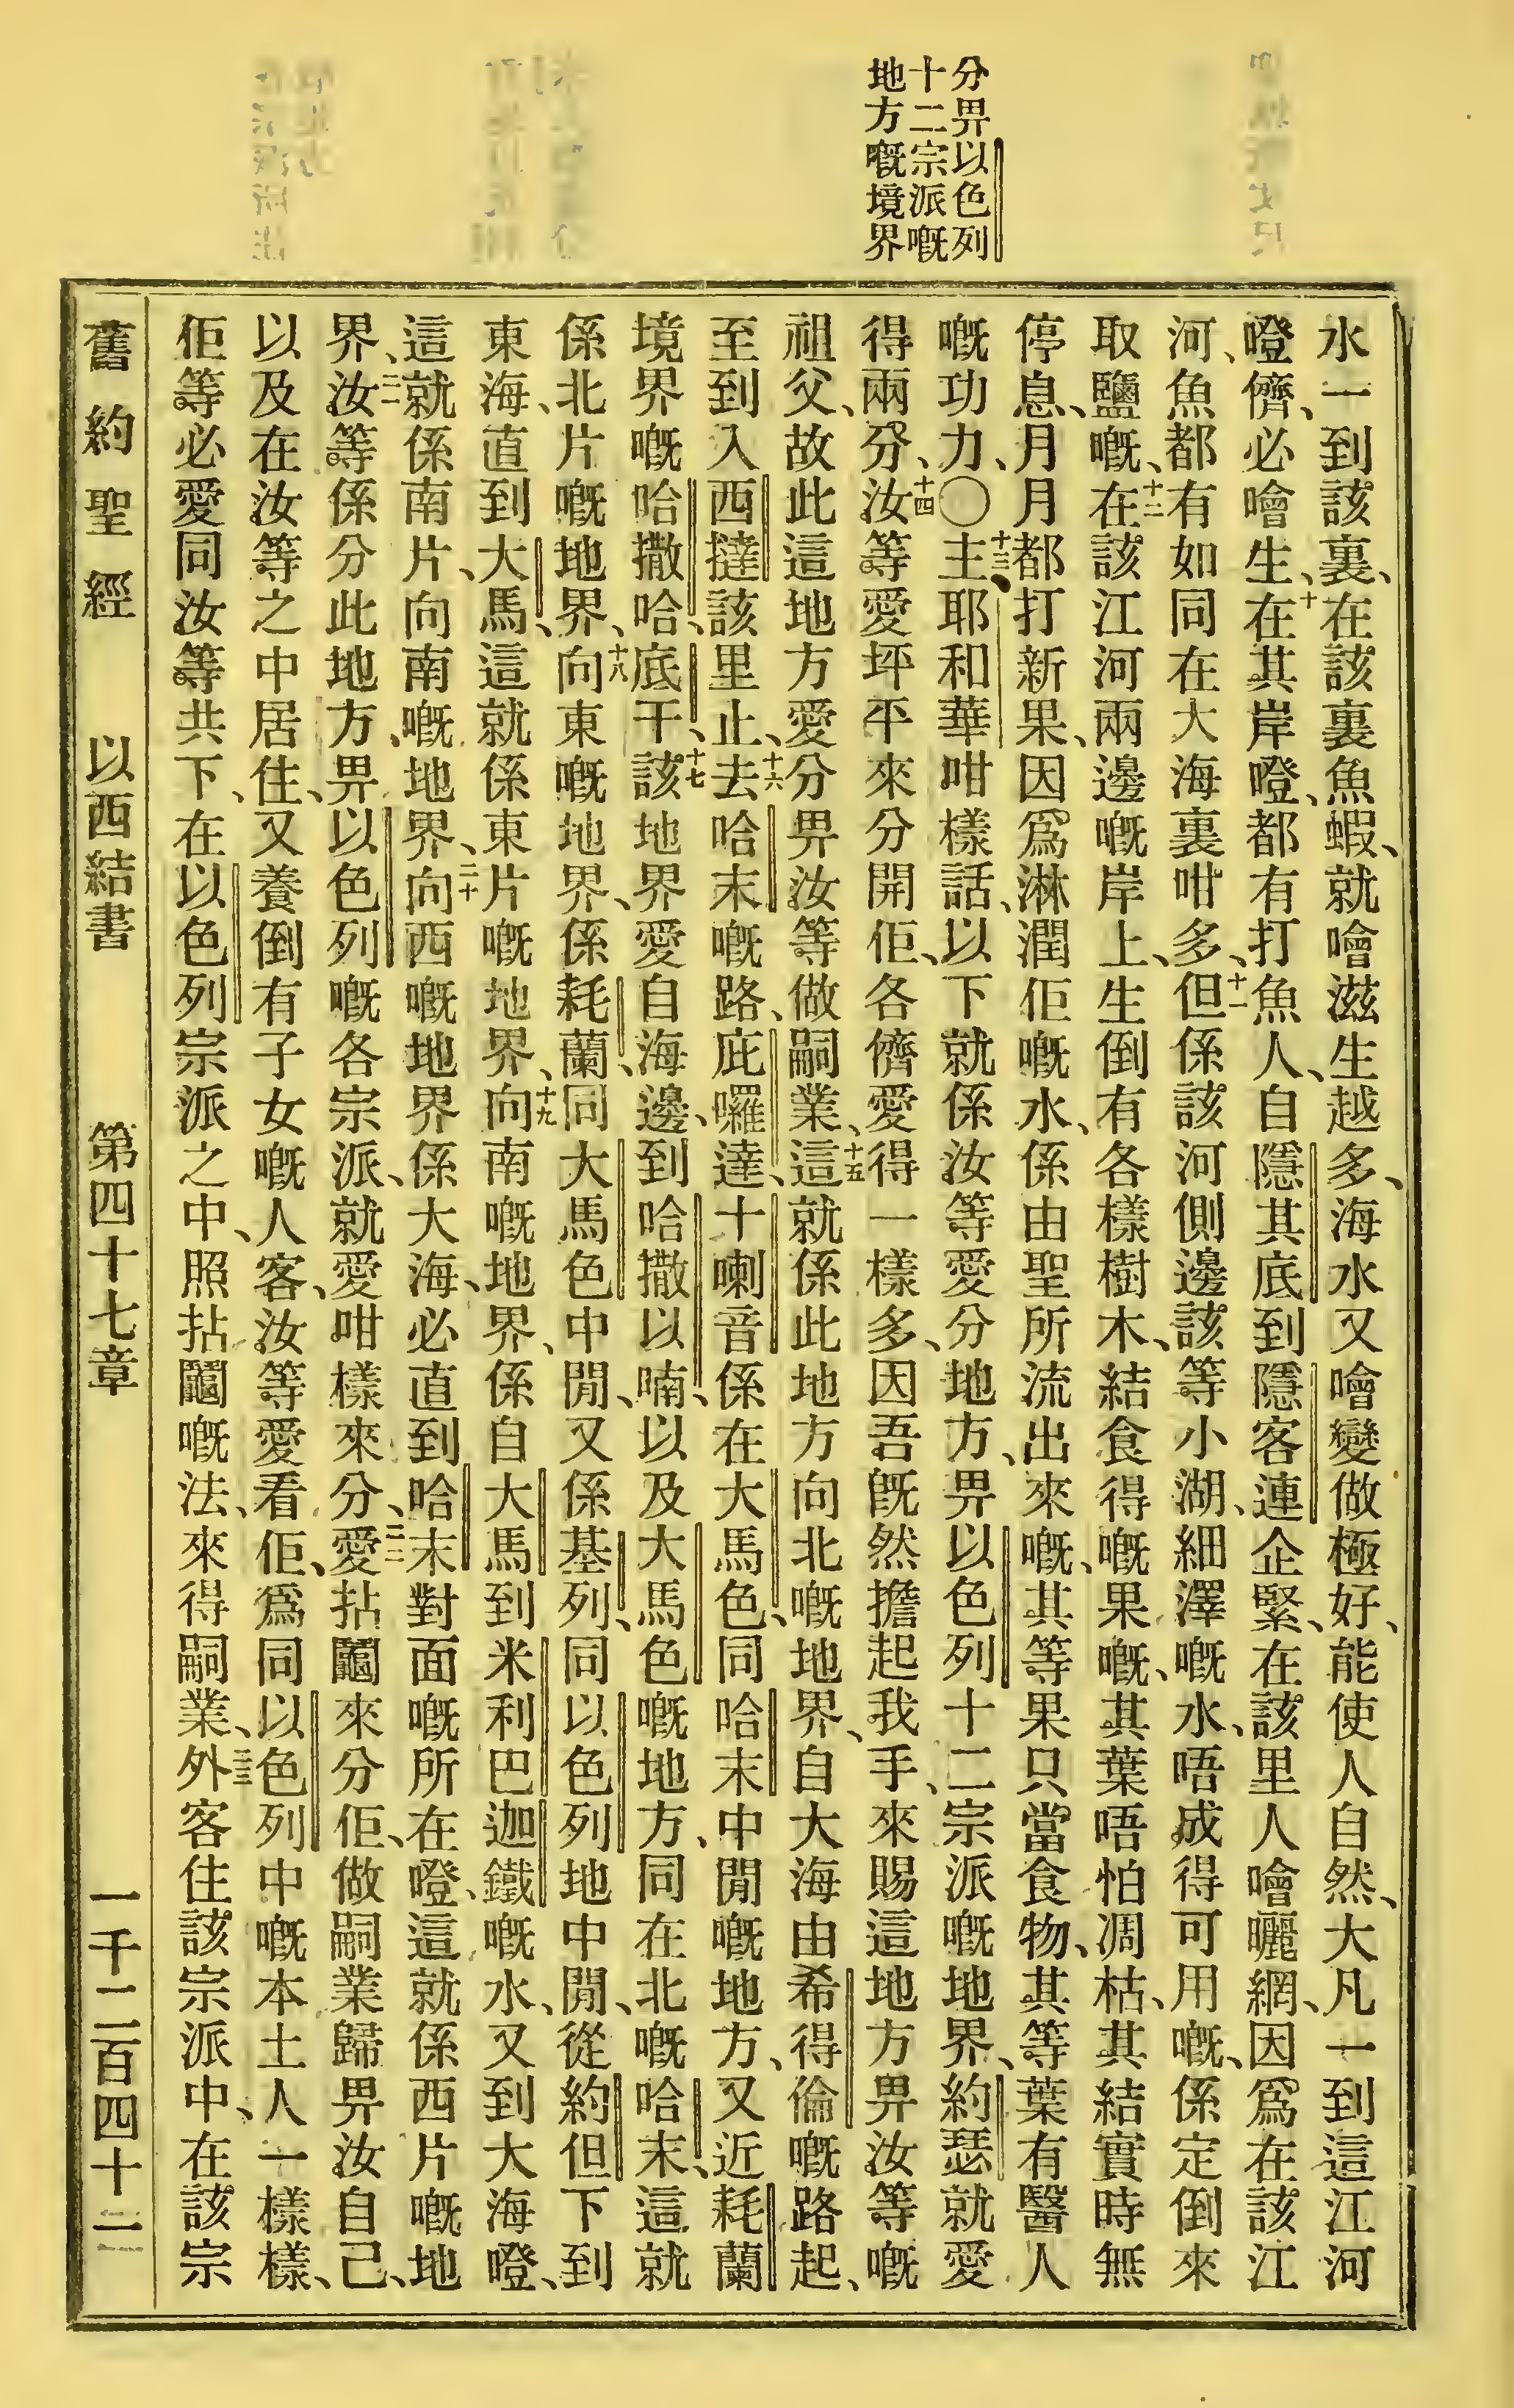 分畀以色列
十二宗派嘅
地方嘅境界
水一到該裏、在該裏魚蝦、就噲滋生越多、海水又噲變做極好、能使人自然、大凡一到這江河
嶝儕、必噲生、十在其岸嶝、都有打魚人、自隱其底到隱客連企緊、在該里人噲曬網、因爲在該江
河、魚都有如同在大海裏咁多、十一但係該河側邊該等小湖、細澤嘅水、唔成得可用嘅、係定倒來
取鹽嘅、十二在該江河兩邊嘅岸上、生倒有各樣樹木、結食得嘅果嘅、其葉唔怕凋枯、其結實時無
停息、月月都打新果、因爲淋潤佢嘅水、係由聖所流出來嘅、其等果只當食物、其等葉有醫人
嘅功力、〇十三主耶和華咁樣話、以下就係汝等愛分地方、畀以色列十二宗派嘅地界、約瑟就愛
得兩分、十四汝等愛坪平來分開佢、各儕愛得一樣多、因吾旣然擔起我手、來賜這地方畀汝等嘅
祖父、故此這地方愛分畀汝等做嗣業、十五這就係此地方向北嘅地界、自大海由希得倫嘅路起、
至到入西撻該里止、十六去哈末嘅路、庇囉達、十喇音係在大馬色、同哈末中閒嘅地方、又近耗蘭
境界嘅哈撒哈、底干、十七該地界愛自海邊、到哈撒以喃、以及大馬色嘅地方、同在北嘅哈末、這就
係北片嘅地界、十八向東嘅地界、係耗蘭、同大馬色中閒、又係基列、同以色列地中閒、從約但下到
東海、直到大馬、這就係東片嘅地界、十九向南嘅地界、係自大馬到米利巴迦鐵嘅水、又到大海嶝、
這就係南片、向南嘅地界、二十向西嘅地界係大海、必直到哈末對面嘅所在嶝、這就係西片嘅地
界、二一汝等係分此地方、畀以色列嘅各宗派、就愛咁樣來分、二二愛拈鬮來分佢、做嗣業歸畀汝自己、
以及在汝等之中居住、又養倒有子女嘅人客、汝等愛看佢、爲同以色列中嘅本土人一樣樣、
佢等必愛同汝等共下、在以色列宗派之中、照拈鬮嘅法、來得嗣業、二三外客住該宗派中、在該宗
舊約聖經 以西結書 第四十七章 一千二百四十二